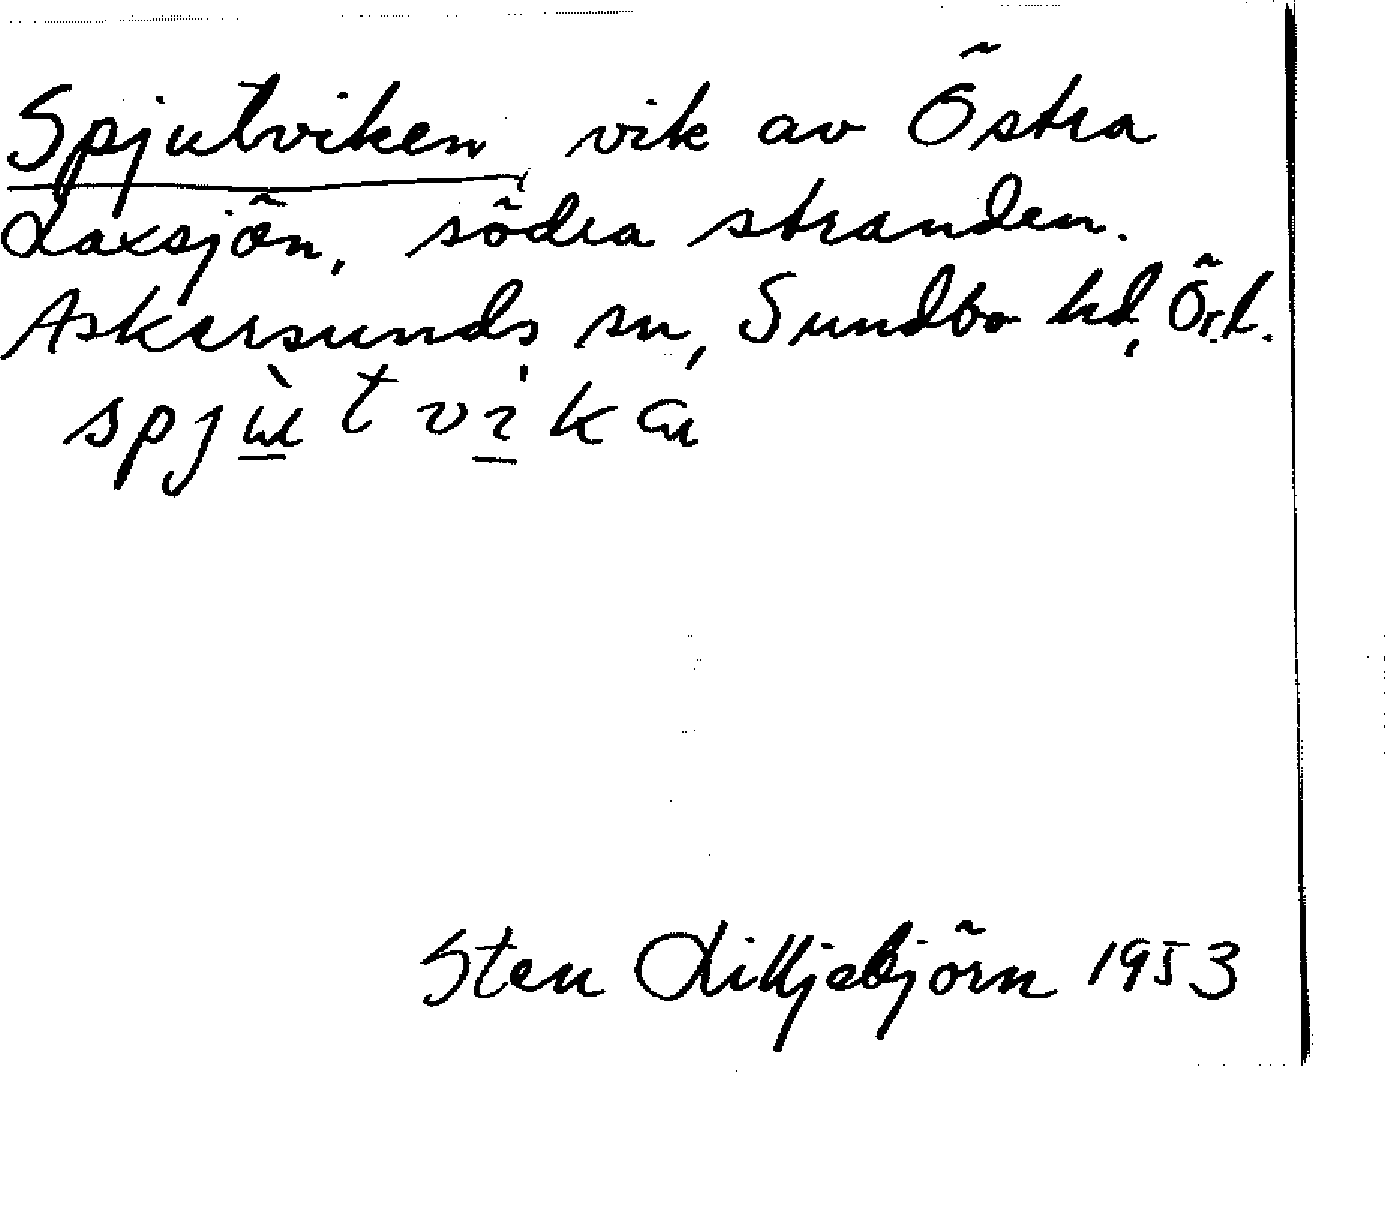 Spjutviken vik av Östra
Laxsjön, södra stranden.
Askersunds sn, Sundbo hd, Örl.
Sten Lilljebjörn 1953